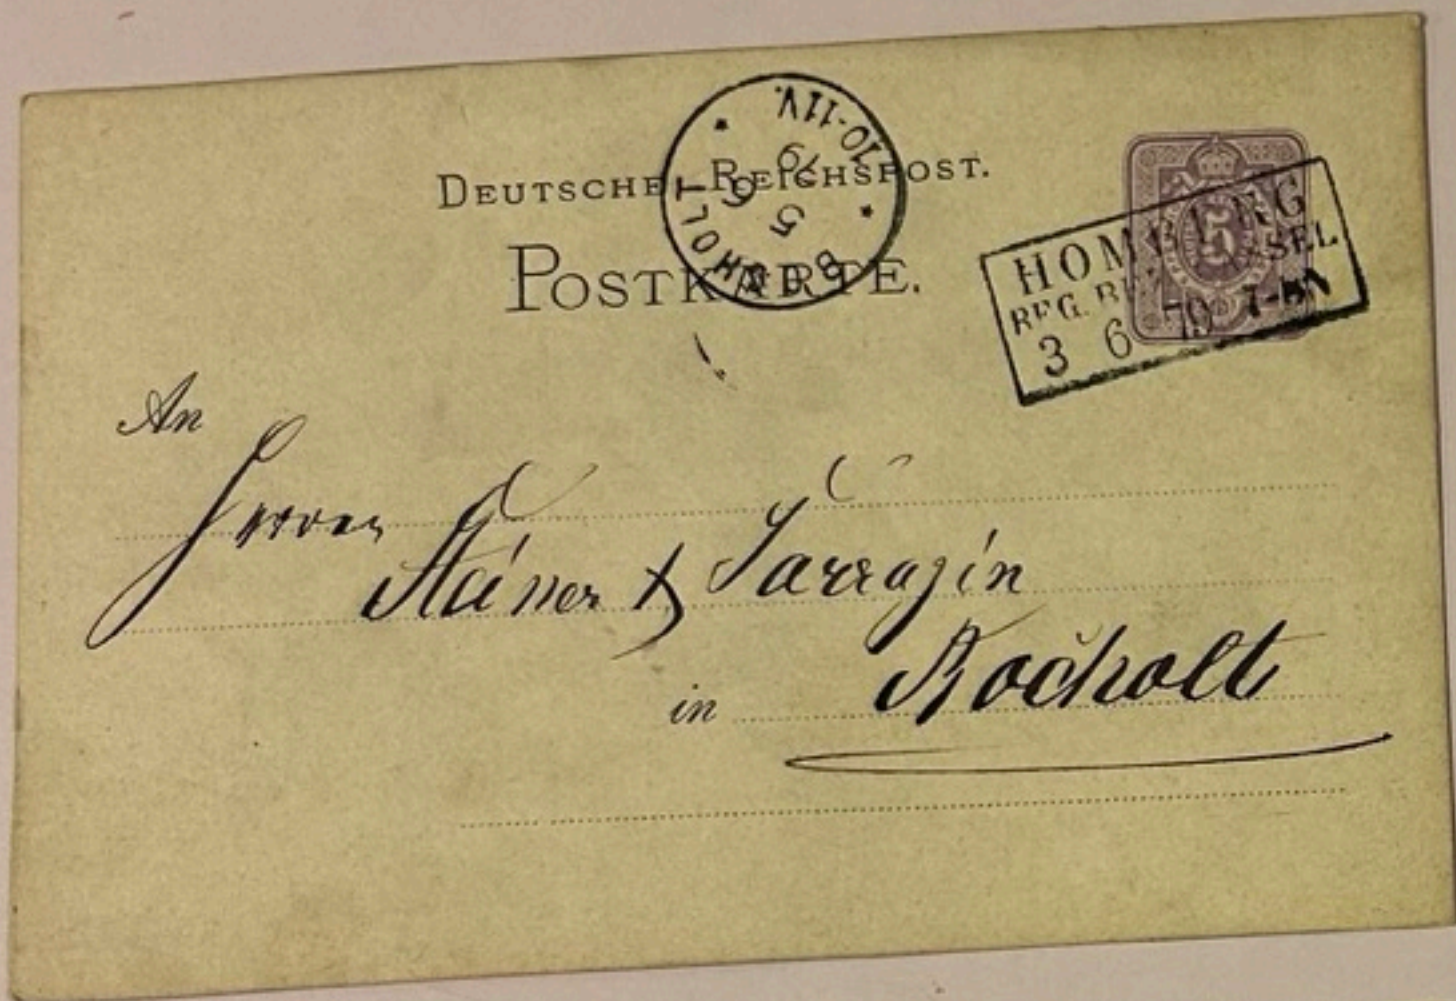 DEUTSCHE REICHSPOST.
POSTKARTE.
BOCHOLT
5 6 79
10-11V.
5
HOMBERG
REG. BEZ. CASSEL
3 6 79 7-8N
An
Herren
& Sarrazin
in Bocholt